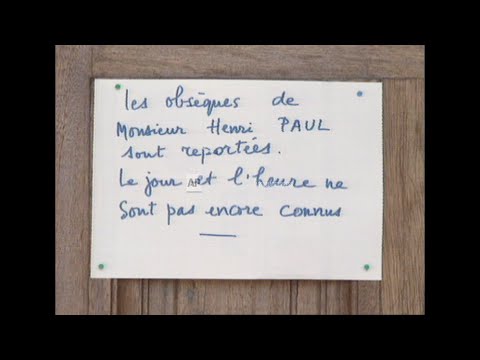 les obsèques de
Monsieur Henri PAUL
sont reportées.
Le jour et l'heure ne
Sont pas encore connus
AP